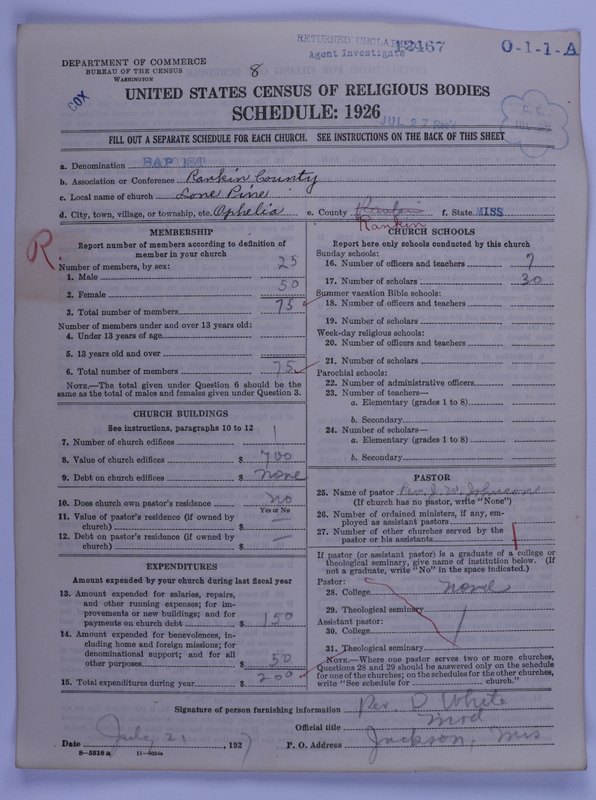 RETURNED UNCLAIMED 12467
Agent Investigate
O-1-1-A
DEPARTMENT OF COMMERCE
BUREAU OF THE CENSUS
WASHINGTON
8
COX
UNITED STATES CENSUS OF RELIGIOUS BODIES
SCHEDULE: 1926
JUL 27 Rec'd
FILL OUT A SEPARATE SCHEDULE FOR EACH CHURCH. SEE INSTRUCTIONS ON THE BACK OF THIS SHEET
a. Denomination BAPTIST
b. Association or Conference Rankin County
c. Local name of church Lone Pine
d. City, town, village, or township, etc. Ophelia e. County Rankin f. State MISS
Rankin
R
MEMBERSHIP
Report number of members according to definition of
member in your church
Number of members, by sex:
1. Male 25
2. Female 50
3. Total number of members 75
Number of members under and over 13 years old:
4. Under 13 years of age
5. 13 years old and over
6. Total number of members 75
NOTE.—The total given under Question 6 should be the
same as the total of males and females given under Question 3.
CHURCH BUILDINGS
See instructions, paragraphs 10 to 12
7. Number of church edifices 1
8. Value of church edifices $ 700
9. Debt on church edifices $ none
10. Does church own pastor's residence no
Yes or No
11. Value of pastor's residence (if owned by
church) $ —
12. Debt on pastor's residence (if owned by
church) $ —
EXPENDITURES
Amount expended by your church during last fiscal year
13. Amount expended for salaries, repairs,
and other running expenses; for im-
provements or new buildings; and for
payments on church debt $ 150
14. Amount expended for benevolences, in-
cluding home and foreign missions; for
denominational support; and for all
other purposes $ 50
15. Total expenditures during year $ 200
CHURCH SCHOOLS
Report here only schools conducted by this church
Sunday schools:
16. Number of officers and teachers 7
17. Number of scholars 30
Summer vacation Bible schools:
18. Number of officers and teachers
19. Number of scholars
Week-day religious schools:
20. Number of officers and teachers
21. Number of scholars
Parochial schools:
22. Number of administrative officers
23. Number of teachers—
a. Elementary (grades 1 to 8)
b. Secondary
24. Number of scholars—
a. Elementary (grades 1 to 8)
b. Secondary
PASTOR
25. Name of pastor Rev. J. W. Johnson
(If church has no pastor, write "None")
26. Number of ordained ministers, if any, em-
ployed as assistant pastors
27. Number of other churches served by the
pastor or his assistants
If pastor (or assistant pastor) is a graduate of a college or
theological seminary, give name of institution below. (If
not a graduate, write "No" in the space indicated.)
Pastor:
28. College none
29. Theological seminary
Assistant pastor:
30. College
31. Theological seminary
NOTE.—Where one pastor serves two or more churches,
Questions 28 and 29 should be answered only on the schedule
for one of the churches; on the schedules for the other churches,
write "See schedule for church."
Signature of person furnishing information Rev. D White
Official title Mod
Date July 21, 1927 P. O. Address Jackson, Mis
8—5518 a